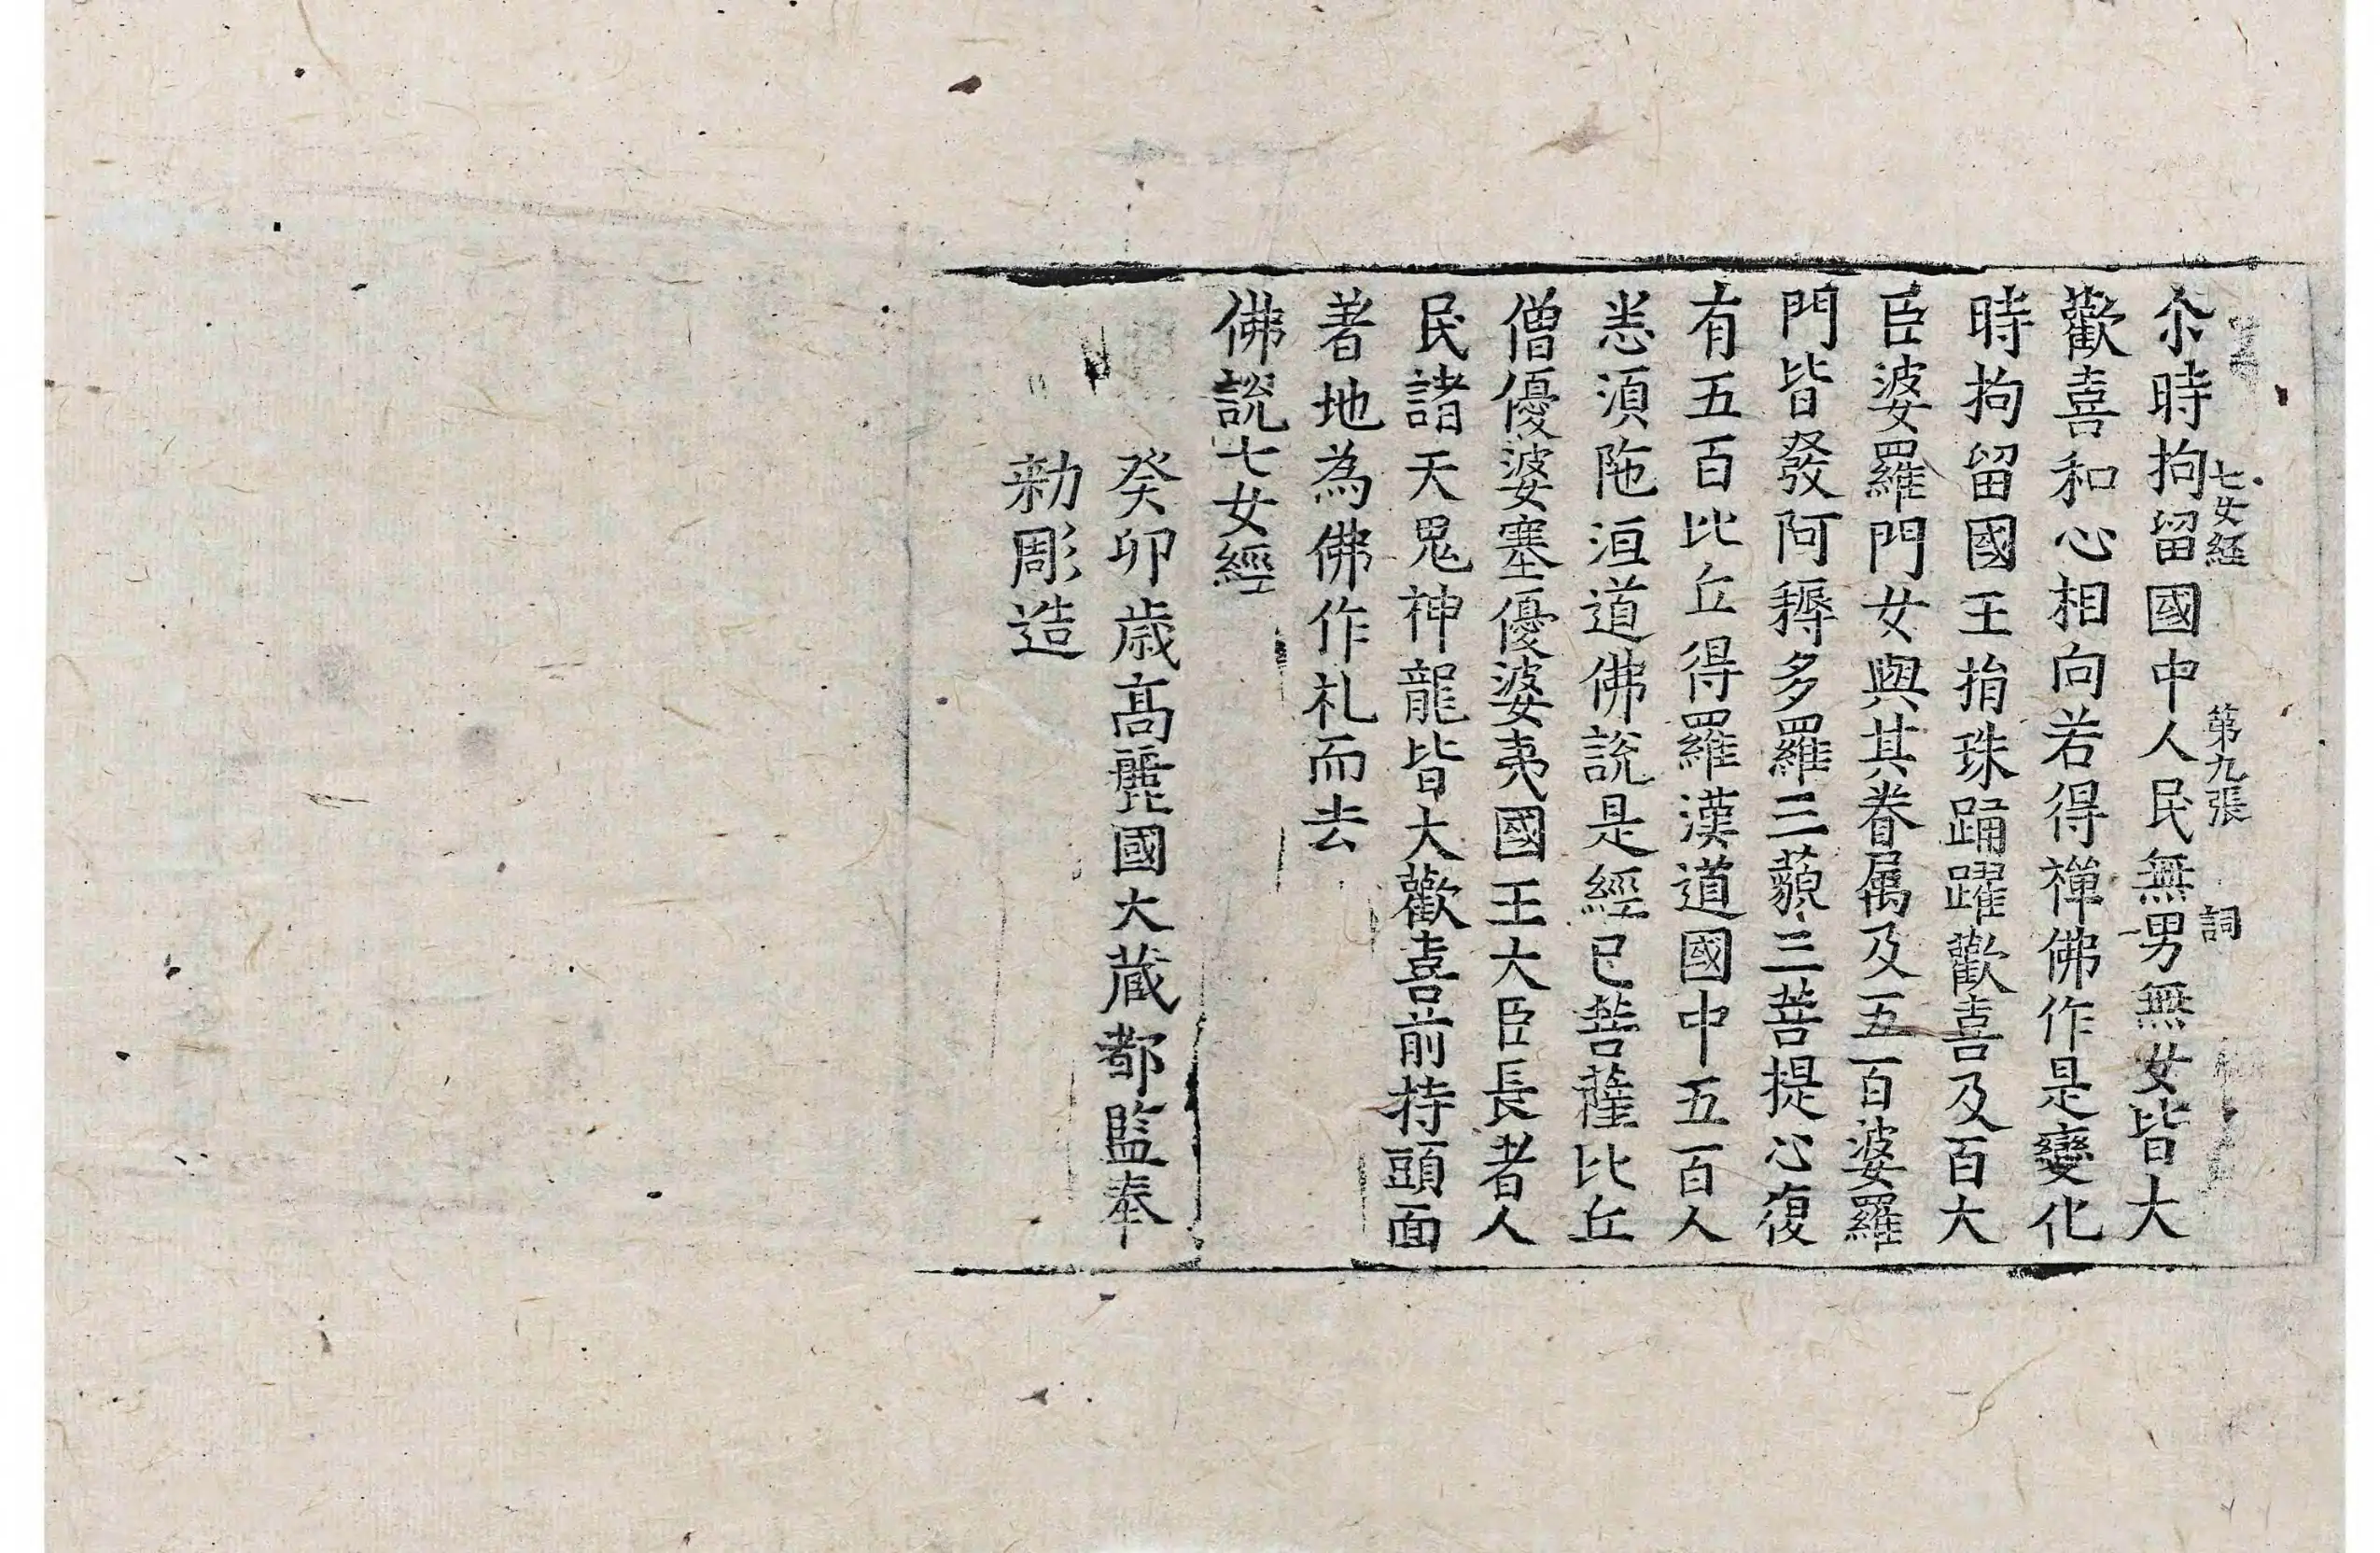 七女経 第九張 詞
尒時拘留國中人民無男無女皆大
歡喜和心相向若得禅佛作是變化
時拘留國王捐珠踊躍歡喜及百大
臣婆羅門女與其眷属及五百婆羅
門皆發阿耨多羅三藐三菩提心復
有五百比丘得羅漢道國中五百人
悉湏陁洹道佛說是經已菩薩比丘
僧優婆塞優婆夷國王大臣長者人
民諸天鬼神龍皆大歡喜前持頭面
著地為佛作礼而去
佛說七女經
癸卯歳高麗國大蔵都監奉
勑彫造